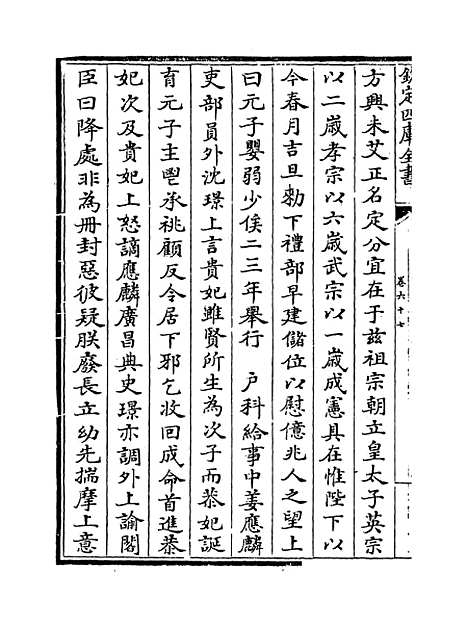 欽定四庫全書
卷六十七
方興未艾正名定分宜在于兹祖宗朝立皇太子英宗
以二歲孝宗以六歲武宗以一歲成憲具在惟陛下以
今春月吉旦勅下禮部早建儲位以慰億兆人之望上
曰元子嬰弱少俟二三年舉行　戶科給事中姜應麟
吏部員外沈璟上言貴妃雖賢所生為次子而恭妃誕
育元子主鬯承祧顧反令居下邪乞收回成命首進恭
妃次及貴妃上怒謫應麟廣昌典史璟亦調外上諭閣
臣曰降處非為冊封惡彼疑朕廢長立幼先揣摩上意